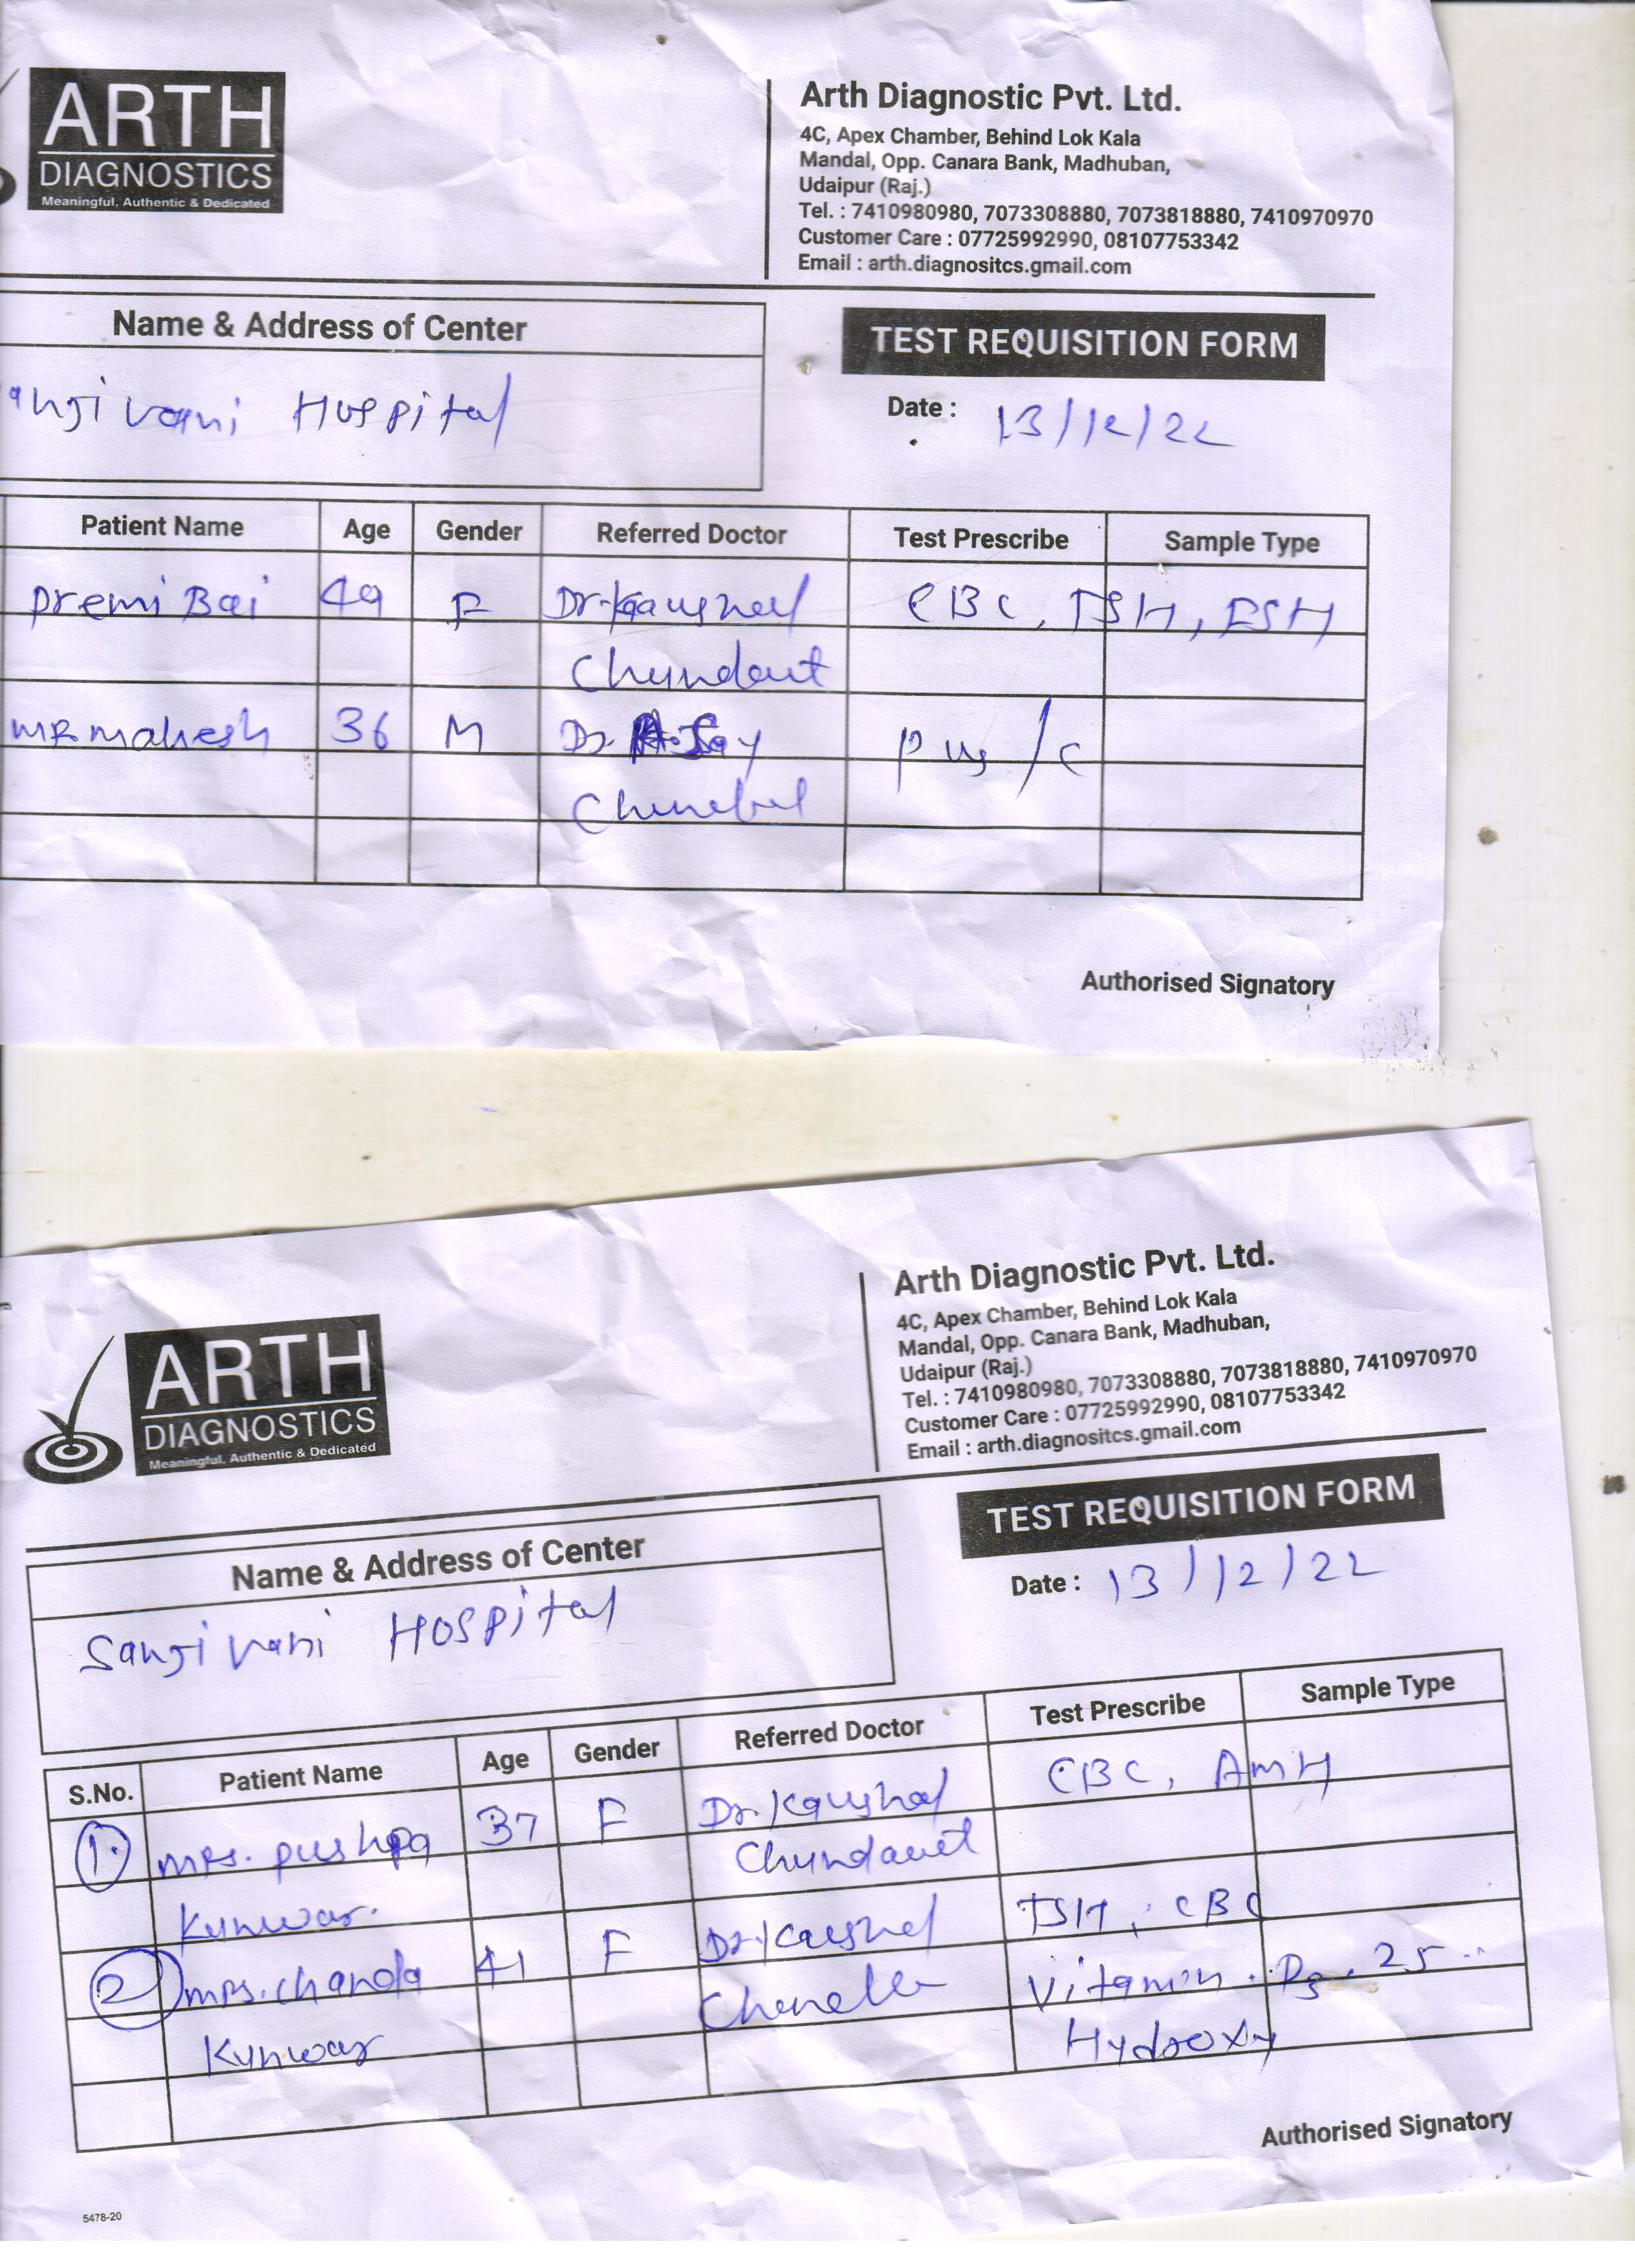 ARTH
DIAGNOSTICS
Meaningful, Authentic & Dedicated
Arth Diagnostic Pvt. Ltd.
4C, Apex Chamber, Behind Lok Kala
Mandal, Opp. Canara Bank, Madhuban,
Udaipur (Raj.)
Tel. : 7410980980, 7073308880, 7073818880, 7410970970
Customer Care : 07725992990, 08107753342
Email : arth.diagnositcs.gmail.com
Name & Address of Center
TEST REQUISITION FORM
angivani Hospital
Date : 13/12/22
Patient Name Age Gender Referred Doctor Test Prescribe Sample Type
Premi Bai 49 F Dr. Kaushal CBC, TSH, FSH
Chundawt
MR mahesh 36 M Dr. pus/c
ARTH
DIAGNOSTICS
Meaningful, Authentic & Dedicated
Arth Diagnostic Pvt. Ltd.
4C, Apex Chamber, Behind Lok Kala
Mandal, Opp. Canara Bank, Madhuban,
Udaipur (Raj.)
Tel. : 7410980980, 7073308880, 7073818880, 7410970970
Customer Care : 07725992990, 08107753342
Email : arth.diagnositcs.gmail.com
Name & Address of Center
TEST REQUISITION FORM
Sangivani Hospital
Date : 13/12/22
S.No. Patient Name Age Gender Referred Doctor Test Prescribe Sample Type
1. mrs. pushpa 37 F Dr. Kaushal CBC, AMH
Kunwar. Chundawt
2 mrs. chanda 41 F Dr. Kaushal TSH, CBC
Kunwar Vitamin. D3. 25
Hydroxy
Authorised Signatory
Authorised Signatory
5478-20